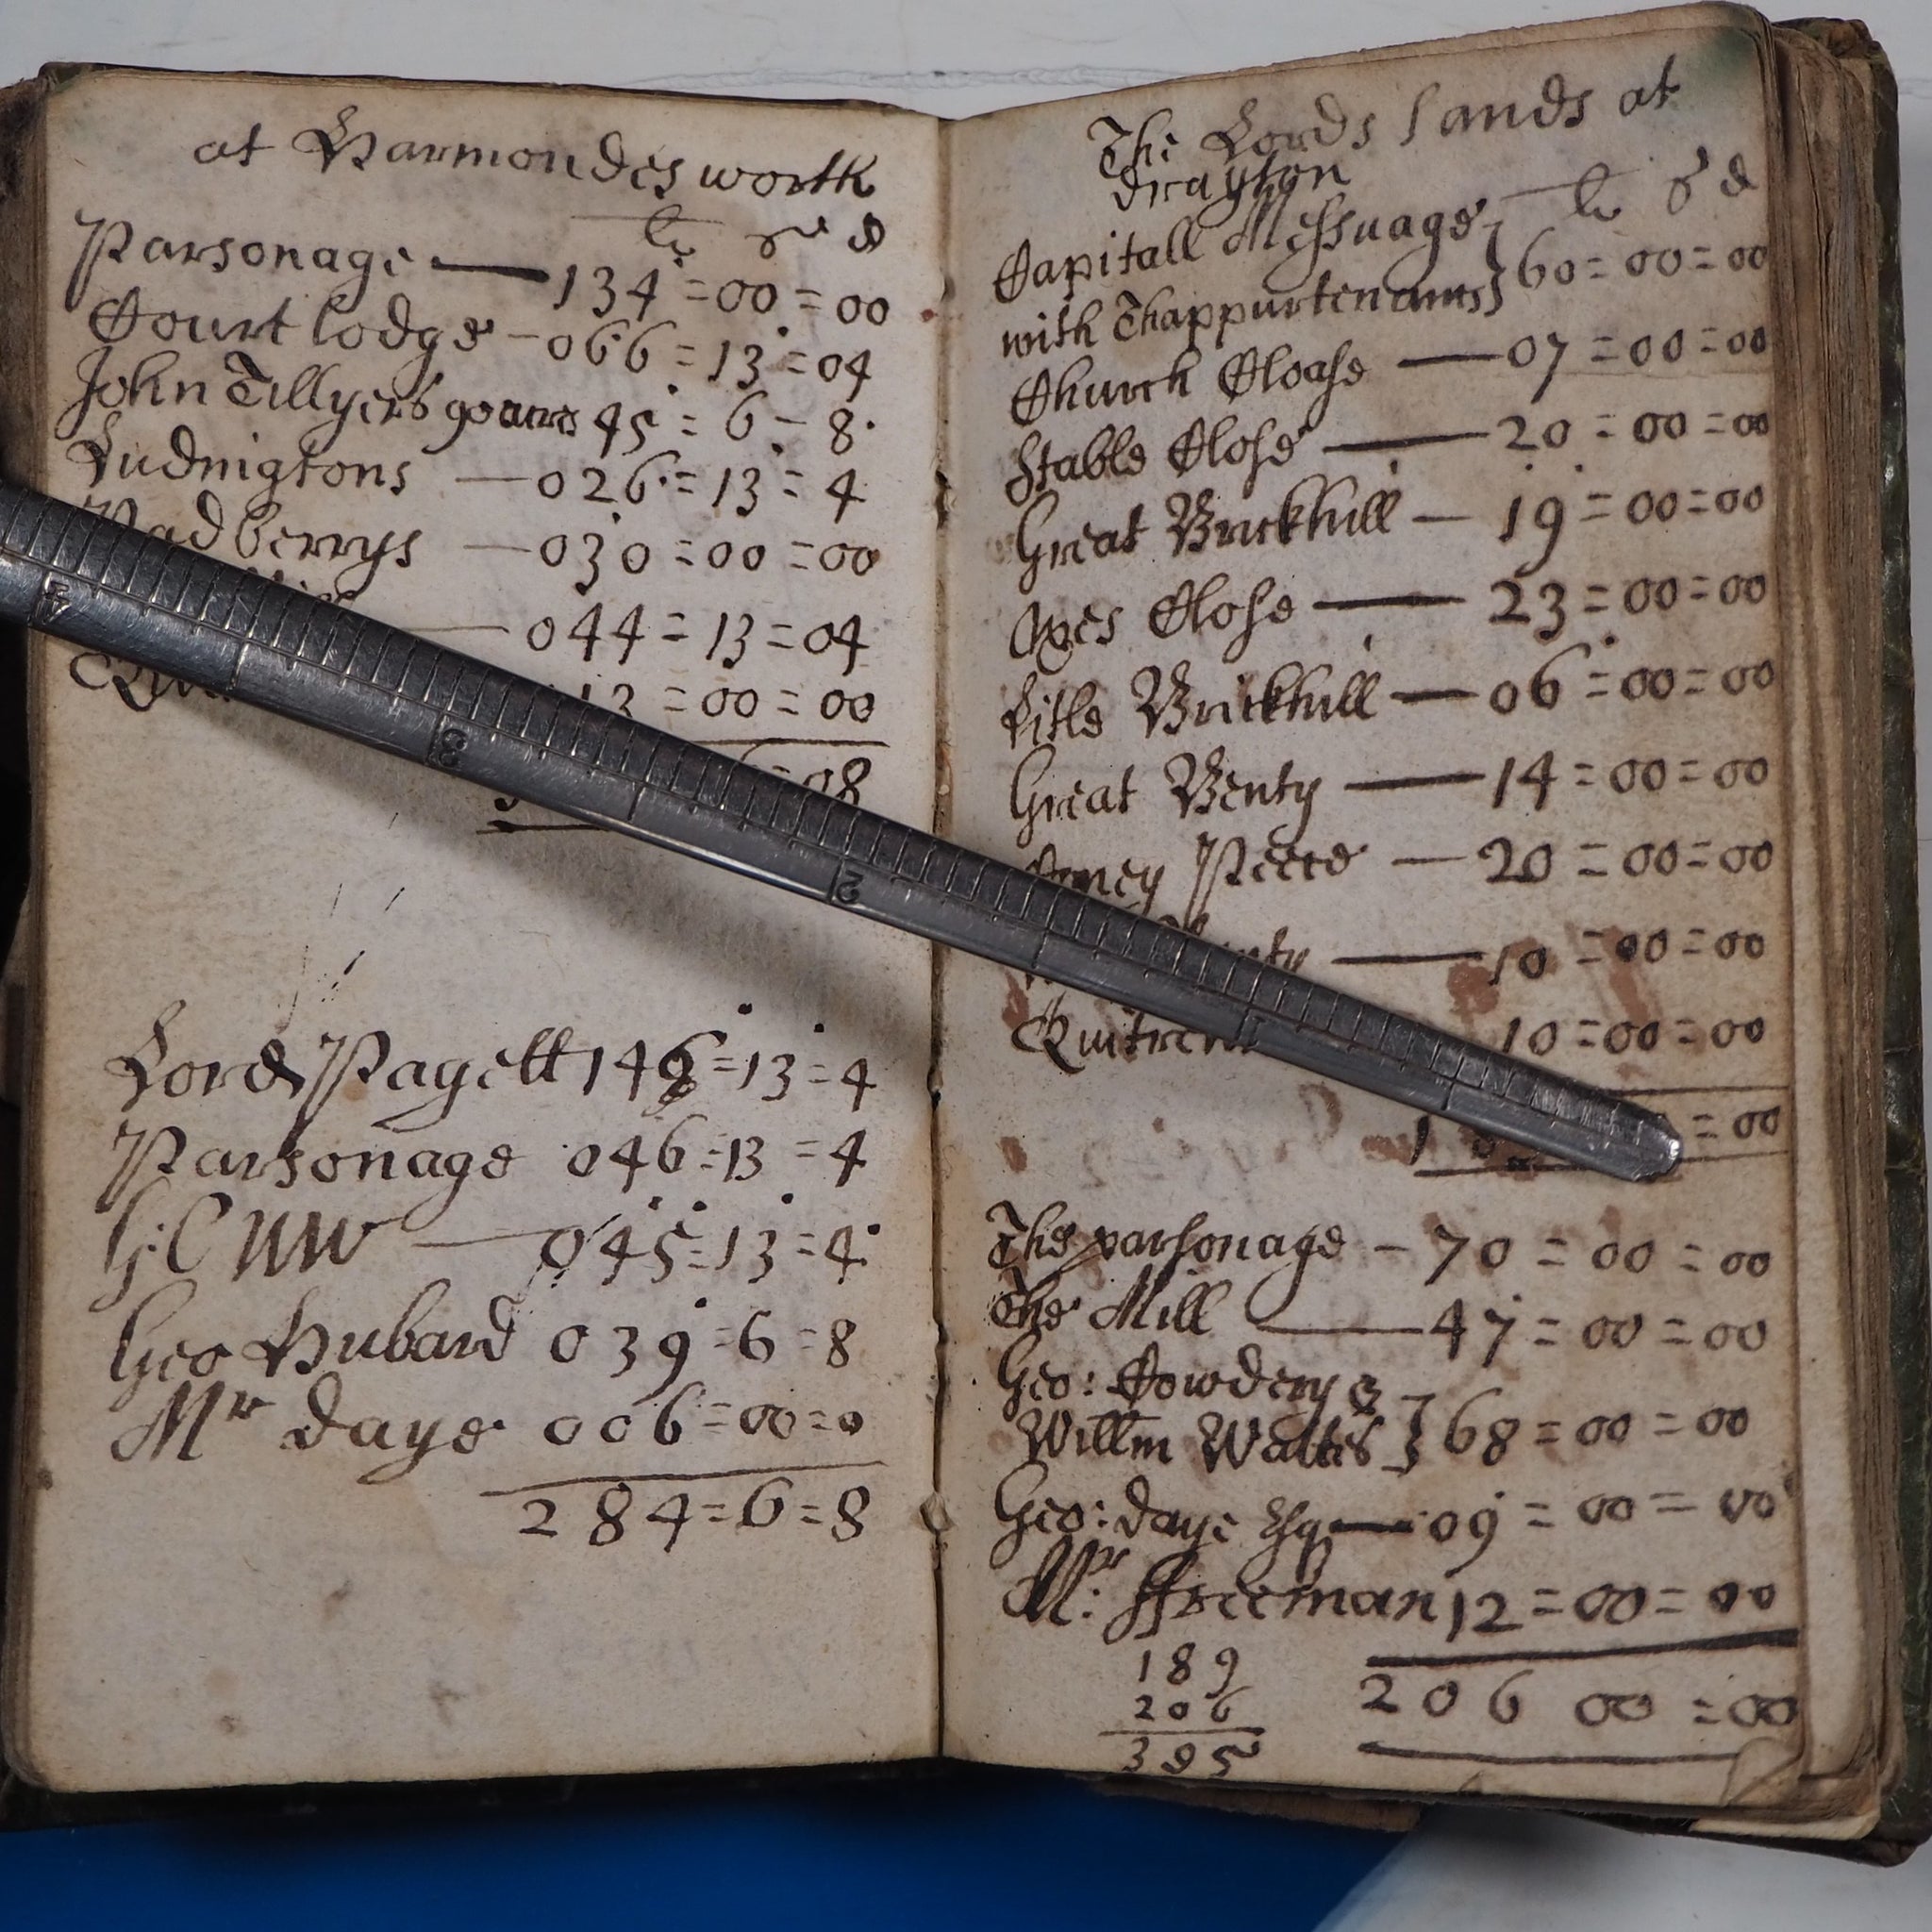 at Harmondesworth
li s d
Parsonage — 134 = 00 = 00
Court lodge — 066 = 13 = 04
John Tillyers 45 = 6 = 8
Ludnigtons — 026 = 13 = 4
Padberrys — 030 = 00 = 00
— 044 = 13 = 04
13 = 00 = 00
= 08
Lord Pagett 146 = 13 = 4
Parsonage 046 = 13 = 4
G: C — 045 = 13 = 4
Geo Hubard 039 = 6 = 8
Mr Daye 006 = 00 = 0
284 = 6 = 8
The Lords Lands at
Drayton
li s d
Capitall Messuage
with Thappurtenances } 60 = 00 = 00
Church Cloase — 07 = 00 = 00
Stable Close — 20 = 00 = 00
Great Brickhill — 19 = 00 = 00
Oxes Close — 23 = 00 = 00
Litle Brickhill — 06 = 00 = 00
Great Benty — 14 = 00 = 00
Peece — 20 = 00 = 00
— 10 = 00 = 00
Quitrent 10 = 00 = 00
1 = 00
The parsonage — 70 = 00 = 00
The Mill — 47 = 00 = 00
Geo: Cowdery &
Willm Wattes } 68 = 00 = 00
Geo: Daye Esq — 09 = 00 = 00
Mr: ffreeman 12 = 00 = 00
206 00 = 00
189
206
395
3
2
1